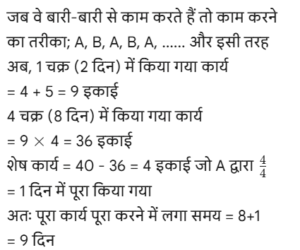 जब वे बारी-बारी से काम करते हैं तो काम करने
का तरीका; A, B, A, B, A, ...... और इसी तरह
अब, 1 चक्र (2 दिन) में किया गया कार्य
= 4 + 5 = 9 इकाई
4 चक्र (8 दिन) में किया गया कार्य
= 9 × 4 = 36 इकाई
शेष कार्य = 40 - 36 = 4 इकाई जो A द्वारा 4/4
= 1 दिन में पूरा किया गया
अतः पूरा कार्य पूरा करने में लगा समय = 8+1
= 9 दिन